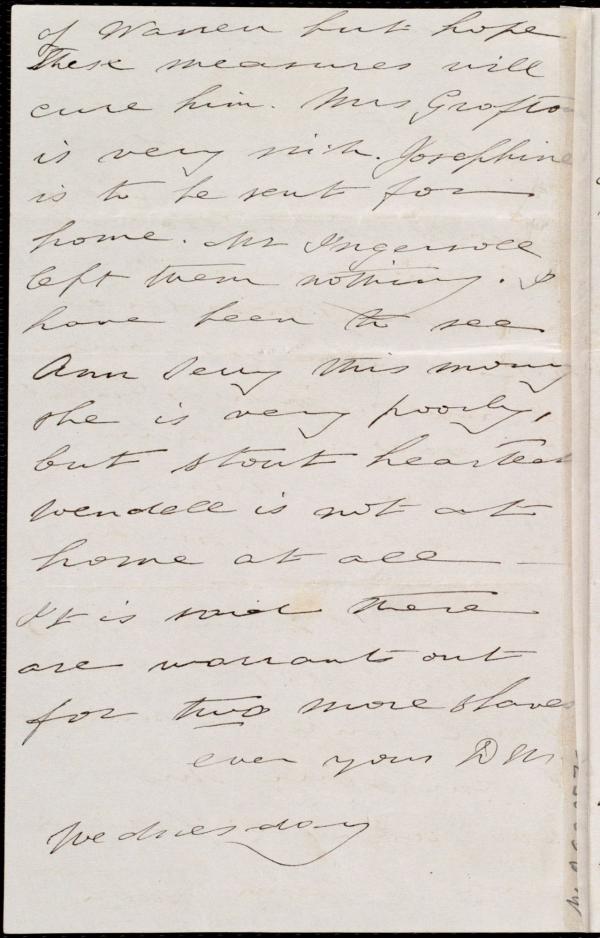 of Warren but hope
These measures will
cure him. Mrs Grafton
is very sick. Josephine
is to be sent for
home. Mr Ingersoll
left them nothing. I
have been to see
Ann Terry this mong
she is very poorly,
but stout hearted
Wendell is not at
home at all —
It is said there
are warrants out
for two more slaves
ever yours D W.
Wednesday